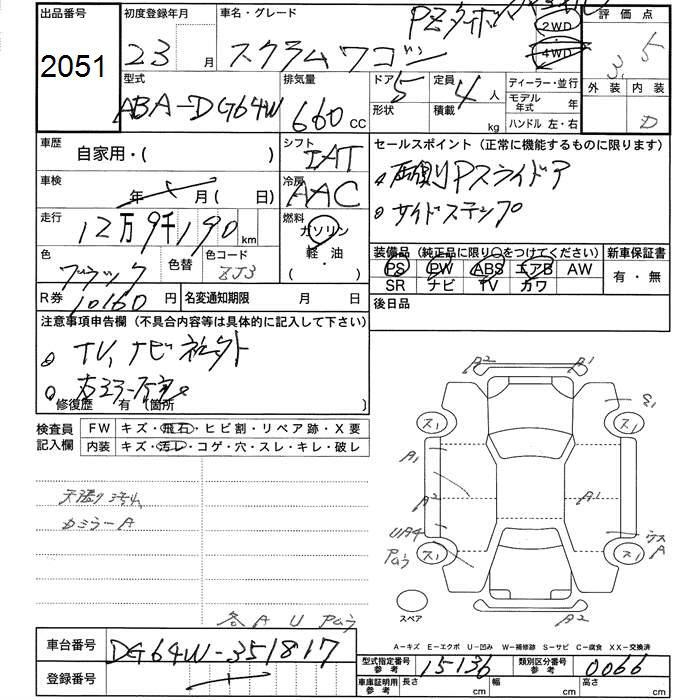 出品番号 初度登録年月 車名・グレード 評価点
PZターボ
2051 23 月 スクラムワゴン 2WD 4WD 3.5
型式 排気量 ドア 定員 ディーラー・並行 外装 内装
ABA-DG64W 660 cc 5 4 人 モデル年式 年 D
形状 積載 kg ハンドル 左・右
車歴 自家用・( ) シフト IAT セールスポイント (正常に機能するものに限ります)
車検 年 月( 日) 冷房 AAC 両側Pスライドア
走行 12万9千190 km 燃料 ガソリン 軽・油 ( ・ ) サイドステップ
色 ブラック 色替 色コード ZJ3
装備品 (純正品に限り○をつけてください) 新車保証書
PS PW ABS エアB AW 有・無
SR ナビ TV カワ
R券 10160 円 名変通知期限 月 日 後日品
注意事項申告欄 (不具合内容等は具体的に記入して下さい)
TV,ナビ
修復歴 有 (箇所 )
検査員記入欄 FW キズ・飛石・ヒビ割・リペア跡・X要
内装 キズ・汚レ・コゲ・穴・スレ・キレ・破レ
A2 A1
ス1 ス1
A1
A2 A1
UA4
ス1 ス1
カミラーA
スペア A2
各 A U
A-キズ E-エクボ U-凹み W-補修跡 S-サビ C-腐食 XX-交換済
車台番号 DG64W-351817
型式指定番号 参考 15136 類別区分番号 参考 0066
登録番号
車庫証明用 参考 長さ cm 幅 cm 高さ cm